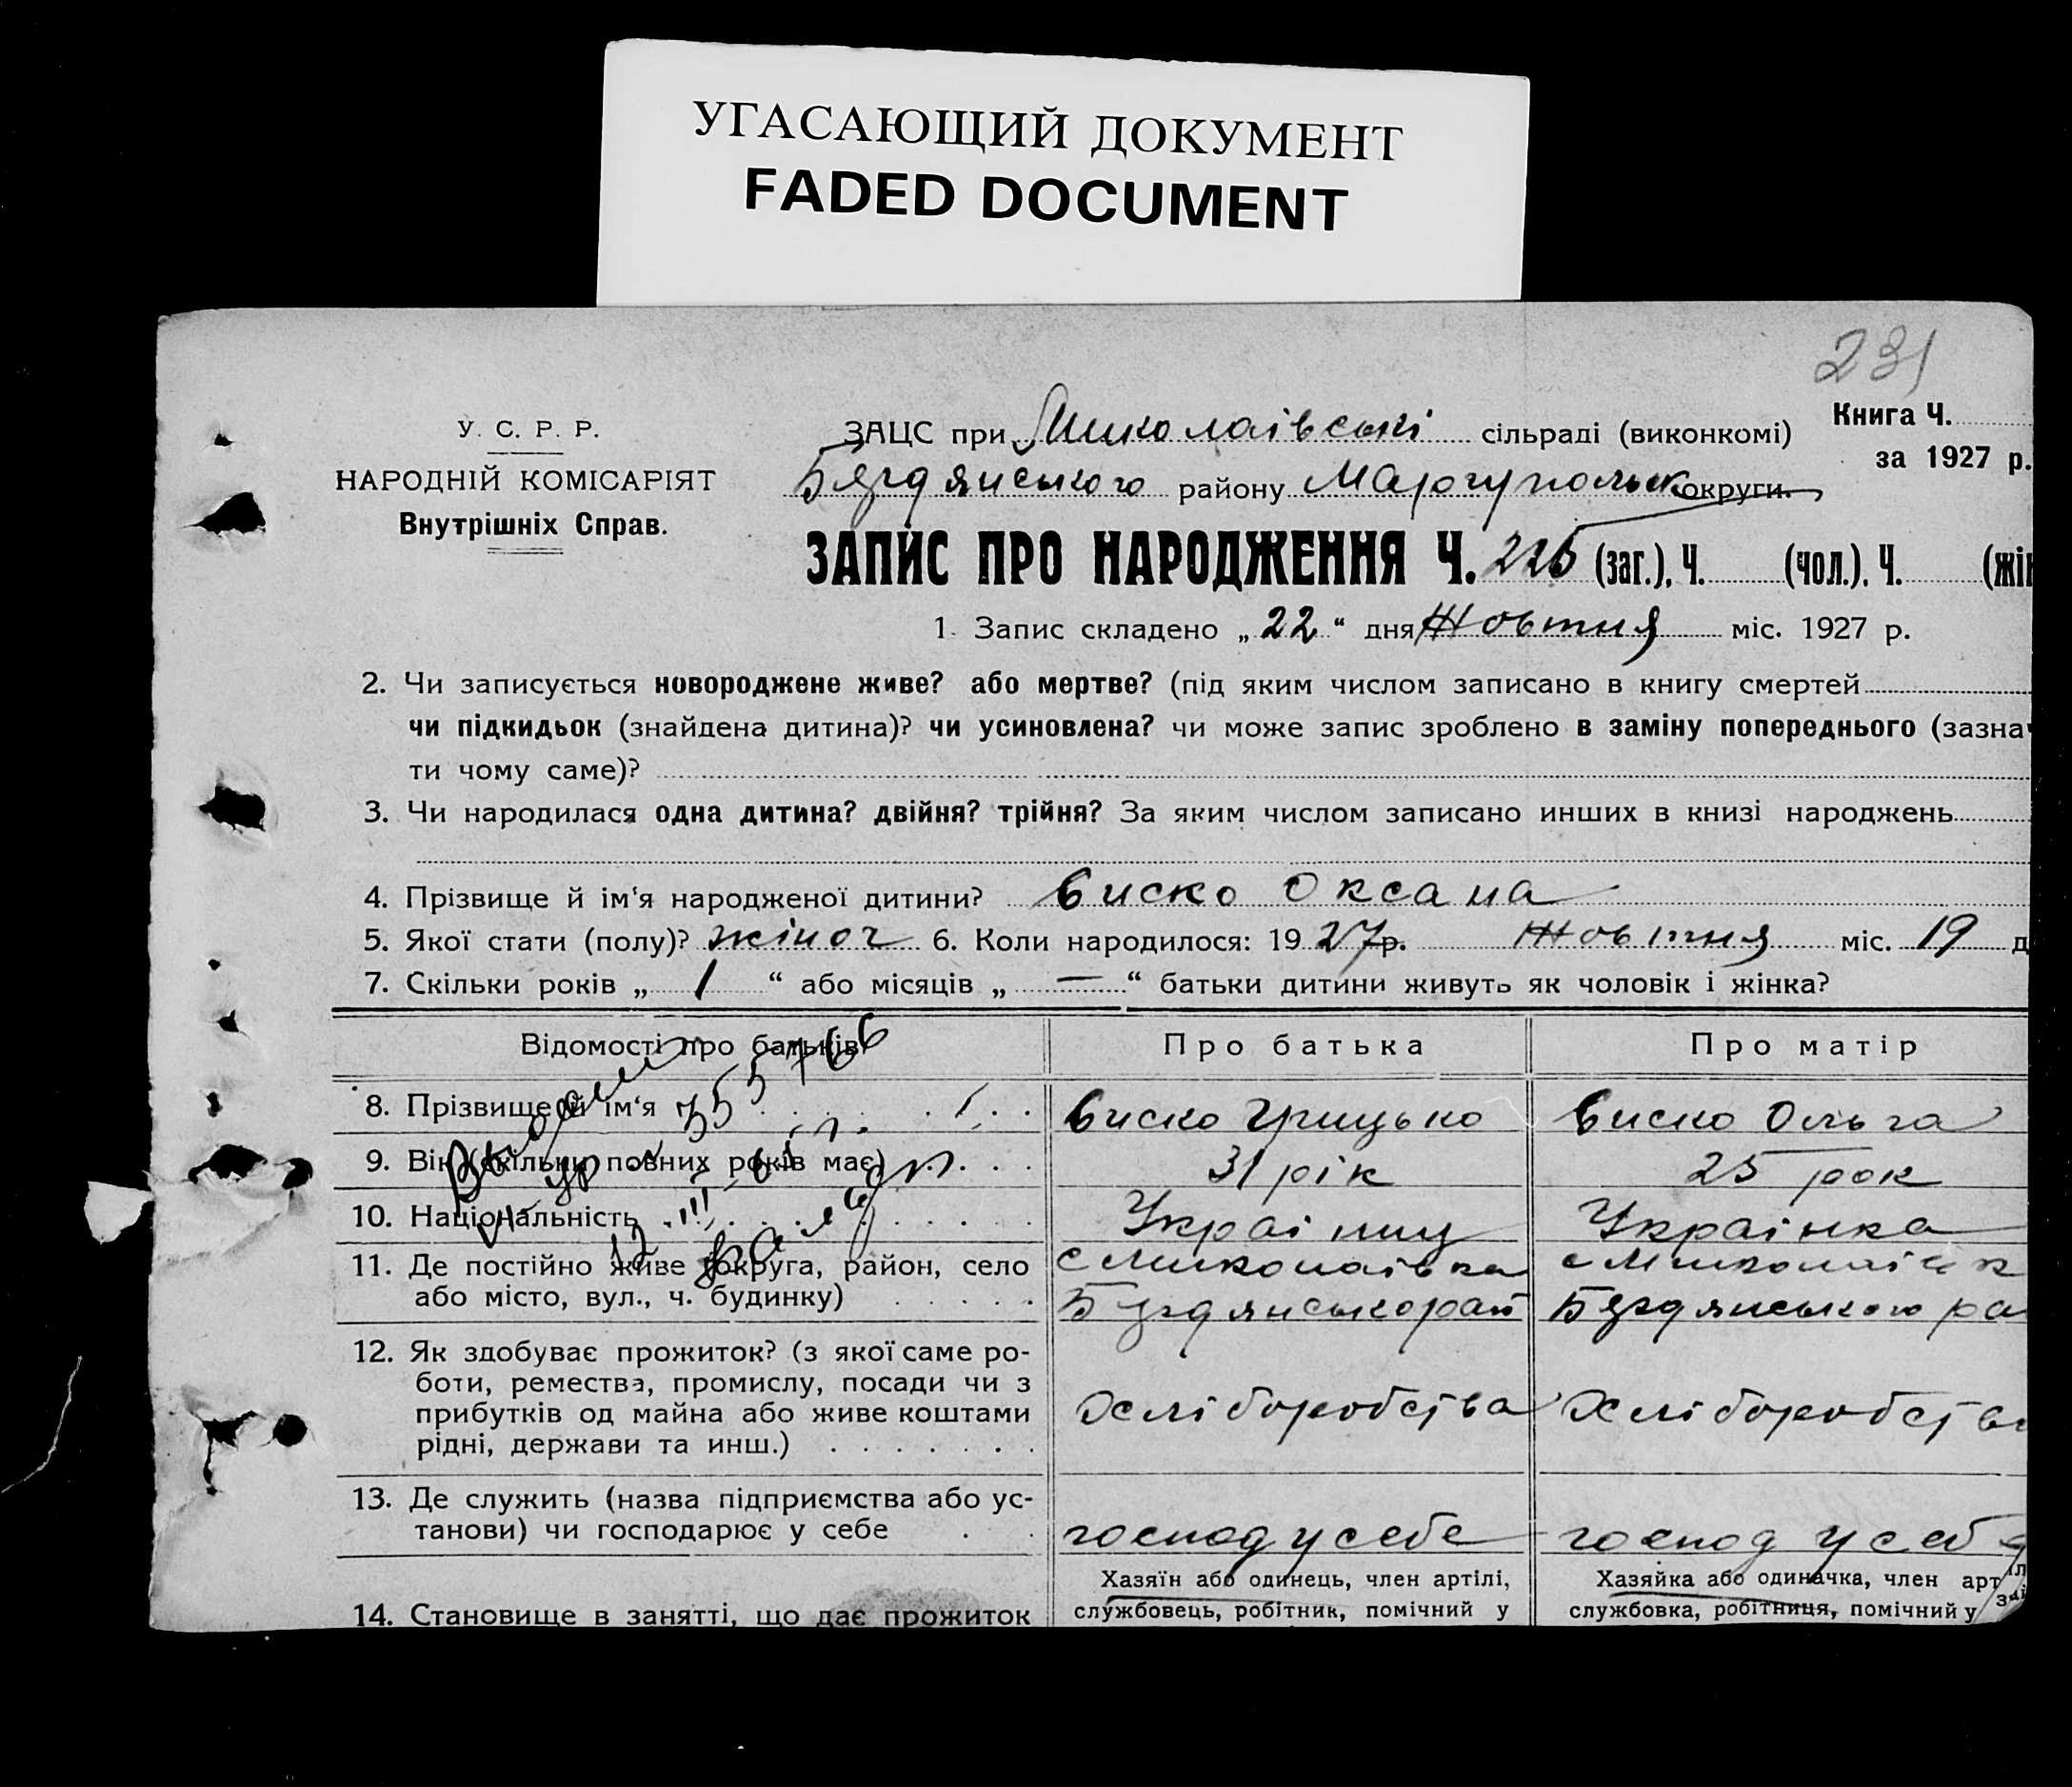 УГАСАЮЩИЙ ДОКУМЕНТ
FADED DOCUMENT
231
У. С. Р. Р.
НАРОДНІЙ КОМІСАРІЯТ
Внутрішніх Справ.
ЗАЦС при Миколаівські сільраді (виконкомі)
Книга Ч.
за 1927 р.
Бердянського району Маріупольськ округи.
ЗАПИС ПРО НАРОДЖЕННЯ Ч. 225 (заг.), Ч. (чол.). Ч. (жін
1. Запис складено „ 22 “ дня Жовтня міс. 1927 р.
2. Чи записується новороджене живе? або мертве? (під яким числом записано в книгу смертей
чи підкидьок (знайдена дитина)? чи усиновлена? чи може запис зроблено в заміну попереднього (зазнач
ти чому саме)?
3. Чи народилася одна дитина? двійня? трійня? За яким числом записано инших в книзі народжень
4. Прізвище й ім‘я народженої дитини? Виско Оксана
5. Якої стати (полу)? жіноч 6. Коли народилося: 19 27 р. Жовтня міс. 19 д
7. Скільки років „ 1 “ або місяців „ — “ батьки дитини живуть як чоловік і жінка?
Відомості про батьків
Про батька
Про матір
8. Прізвище й ім‘я
Виско Грицько
Виско Ольга
9. Вік (скільки повних років має)
31 рік
25 рок
10. Національність
Украінец
Украінка
11. Де постійно живе (округа, район, село
або місто, вул., ч. будинку)
с Миколаівка
Бердянськорай
с Миколаівк
Бердянського ра
12. Як здобуває прожиток? (з якої саме ро-
боти, ремества, промислу, посади чи з
прибутків од майна або живе коштами
рідні, держави та инш.)
Хліборобства
Хліборобства
13. Де служить (назва підприємства або ус-
танови) чи господарює у себе
господ у себе
господ у себе
14. Становище в занятті, що дає прожиток
Хазяїн або одинець, член артілі,
службовець, робітник, помічний у
Хазяйка або одиначка, член арт
службовка, робітниця, помічний у
355766